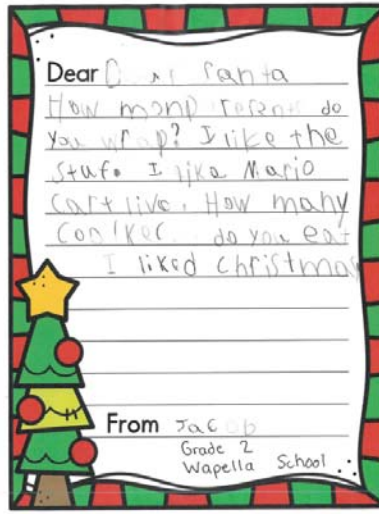 Dear Dear Santa
How many resents do
you wrap? I like the
Stuf. I like Mario
Cart live. How many
do you eat
I liked christmas
From Jacob
Grade 2
Wapella School